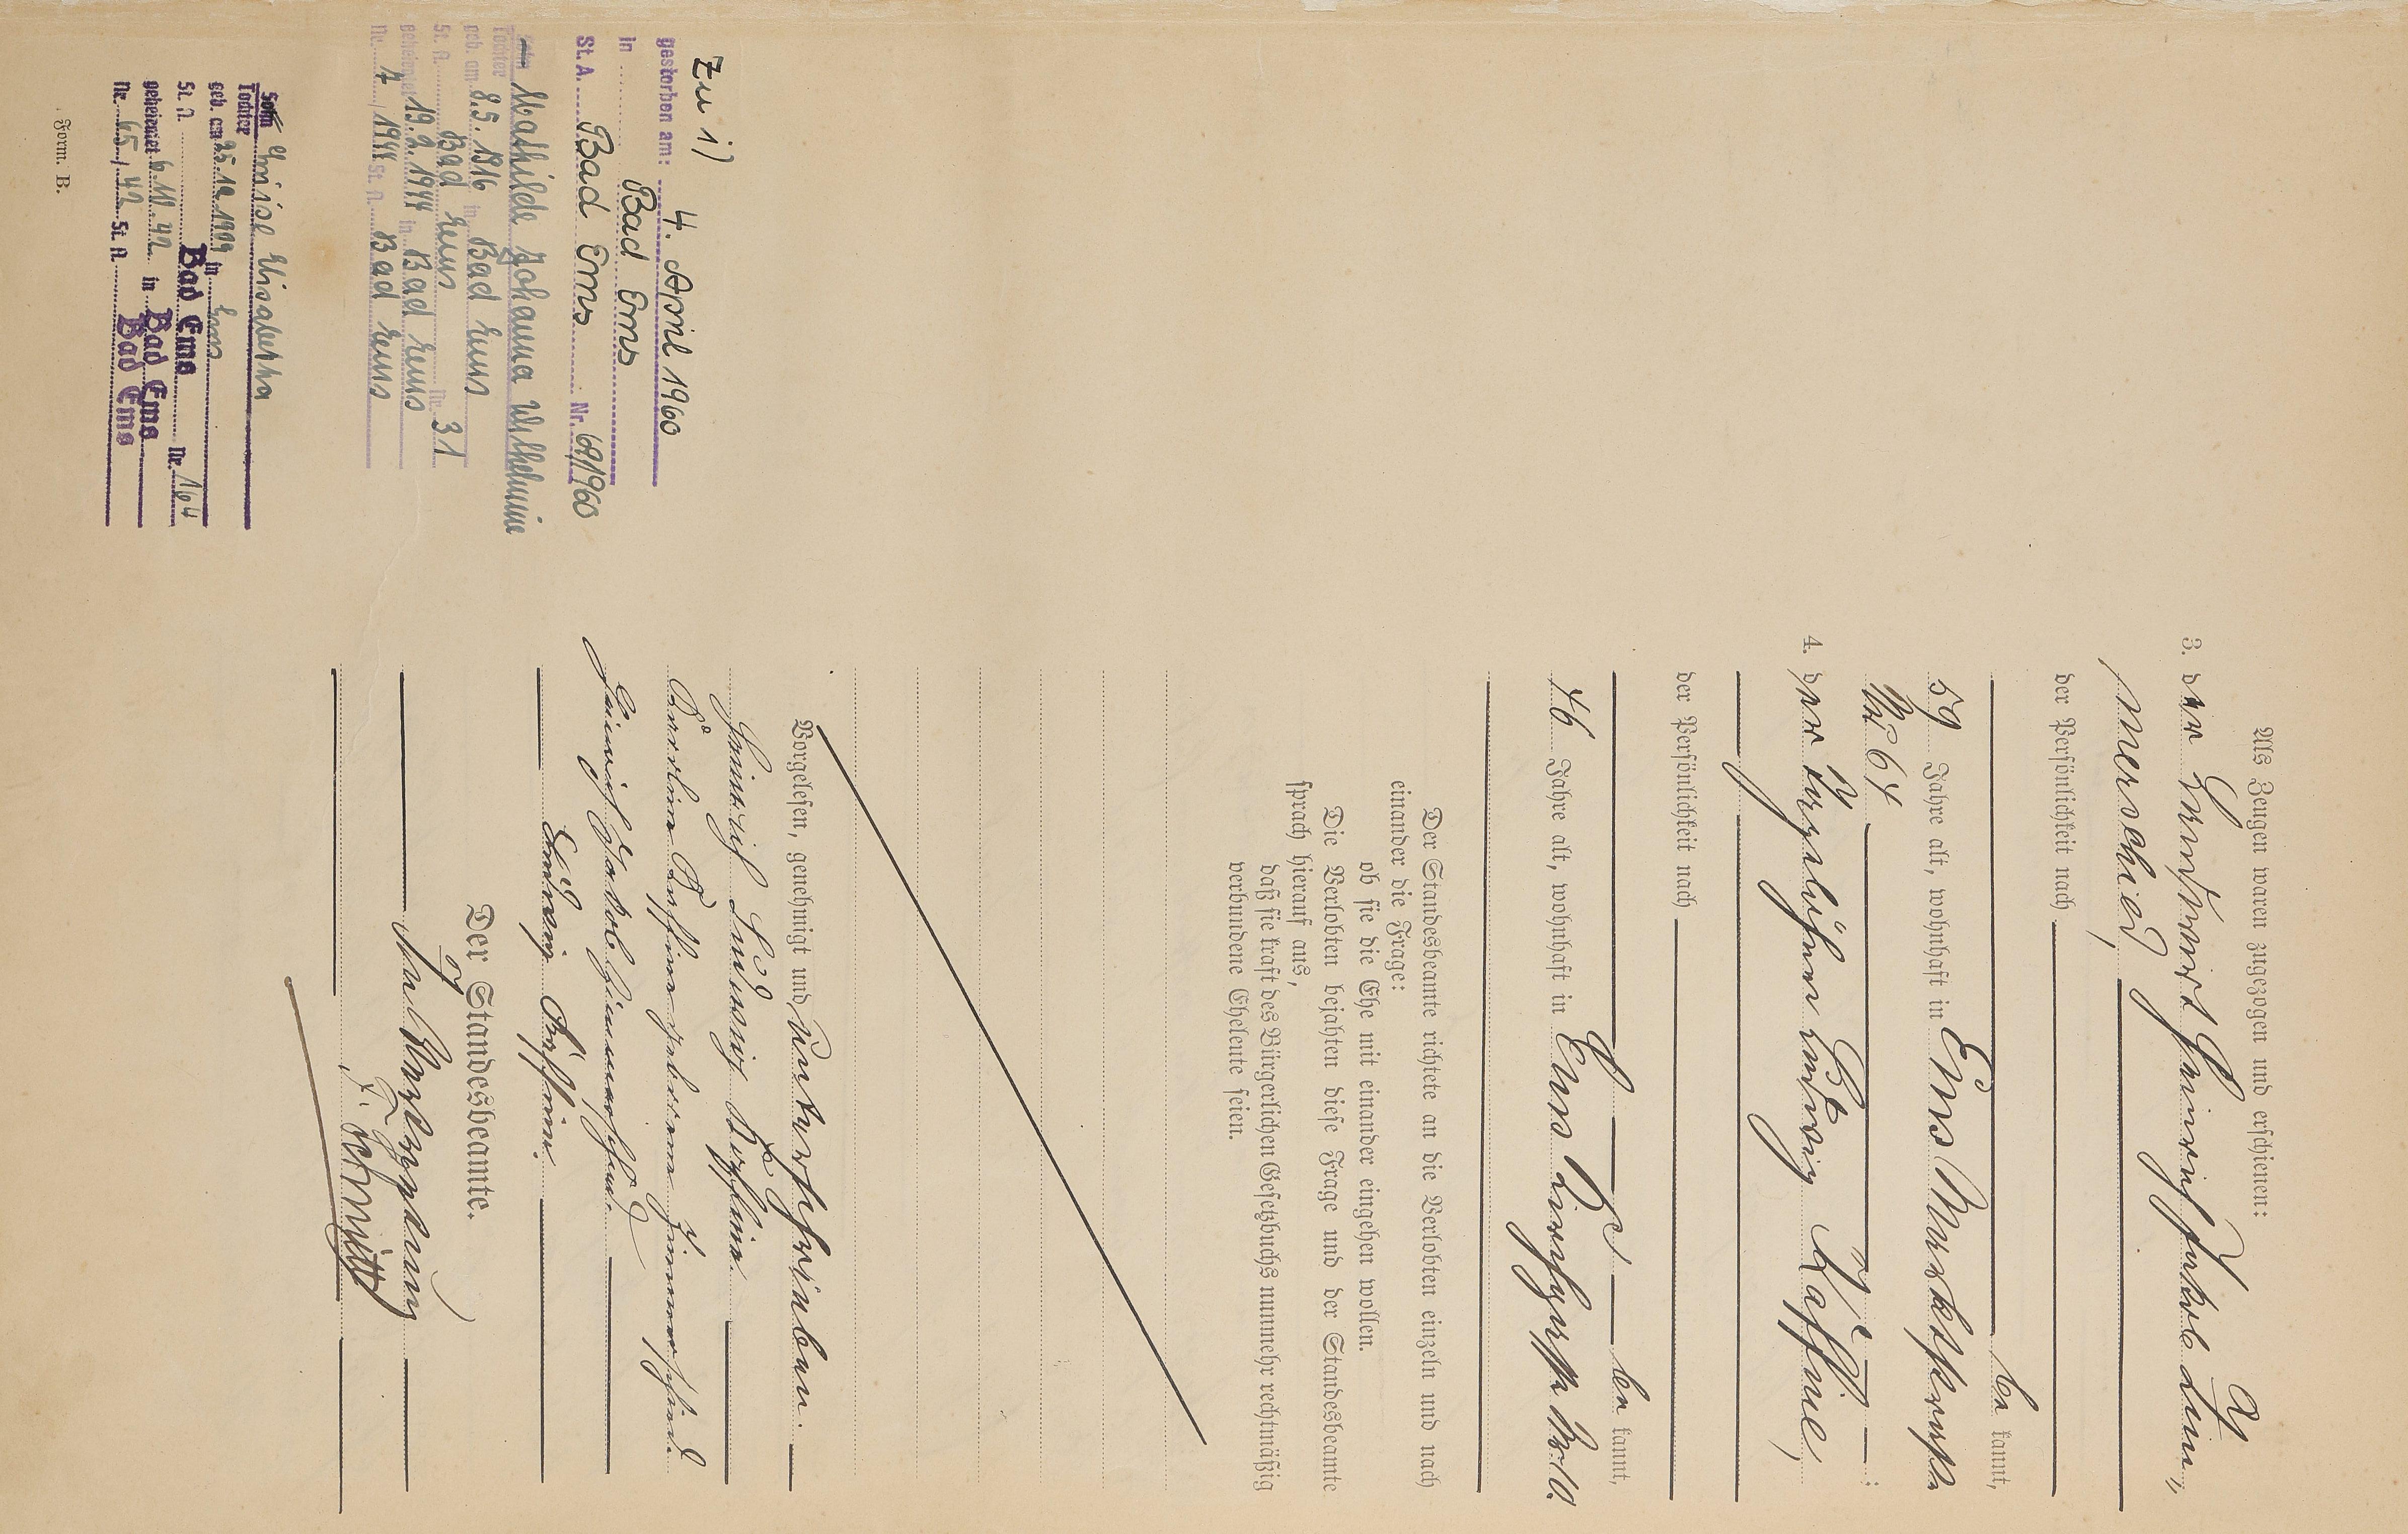 Als Zeugen waren zugezogen und erschienen:
3. der Heinrich Jakob Zim¬
merschied,
der Persönlichkeit nach
be kannt,
59 Jahre alt, wohnhaft in Ems Marktstraße
No 64
4. der Ludwig Kaffine,
der Persönlichkeit nach
be kannt,
46 Jahre alt, wohnhaft in Ems
Der Standesbeamte richtete an die Verlobten einzeln und nach
einander die Frage:
ob sie die Ehe mit einander eingehen wollen.
Die Verlobten bejahten diese Frage und der Standesbeamte
sprach hierauf aus,
daß sie kraft des Bürgerlichen Gesetzbuchs nunmehr rechtmäßig
verbundene Eheleute seien.
Vorgelesen, genehmigt und unterschrieben.
Heinrich Ludwig Kaffine.
Karoline Kaffine geborene Zimmerschied
Heinrich Jakob Zimmerschied
Ludwig Kaffine.
Der Standesbeamte.
In Vertretung
Schmitt
Zu 1)
gestorben am: 4. April 1960
in Bad Ems
St. A. Bad Ems Nr. 69/1960
Sohn Mathilde Johanna Wilhelmine
Tochter
geb. am 8.5.1916 in Bad Ems
St. A. Bad Ems Nr. 31
geheiratet 19.2.1944 in Bad Ems
Nr. 7 / 1944 St. A. Bad Ems
Sohn Luise Elisabetha
Tochter
geb. am 25.10.1909 in Ems
St. A. Bad Ems Nr. 164
geheiratet 6.10.42 in Bad Ems
Nr. 65 / 42 St. A. Bad Ems
Form. B.